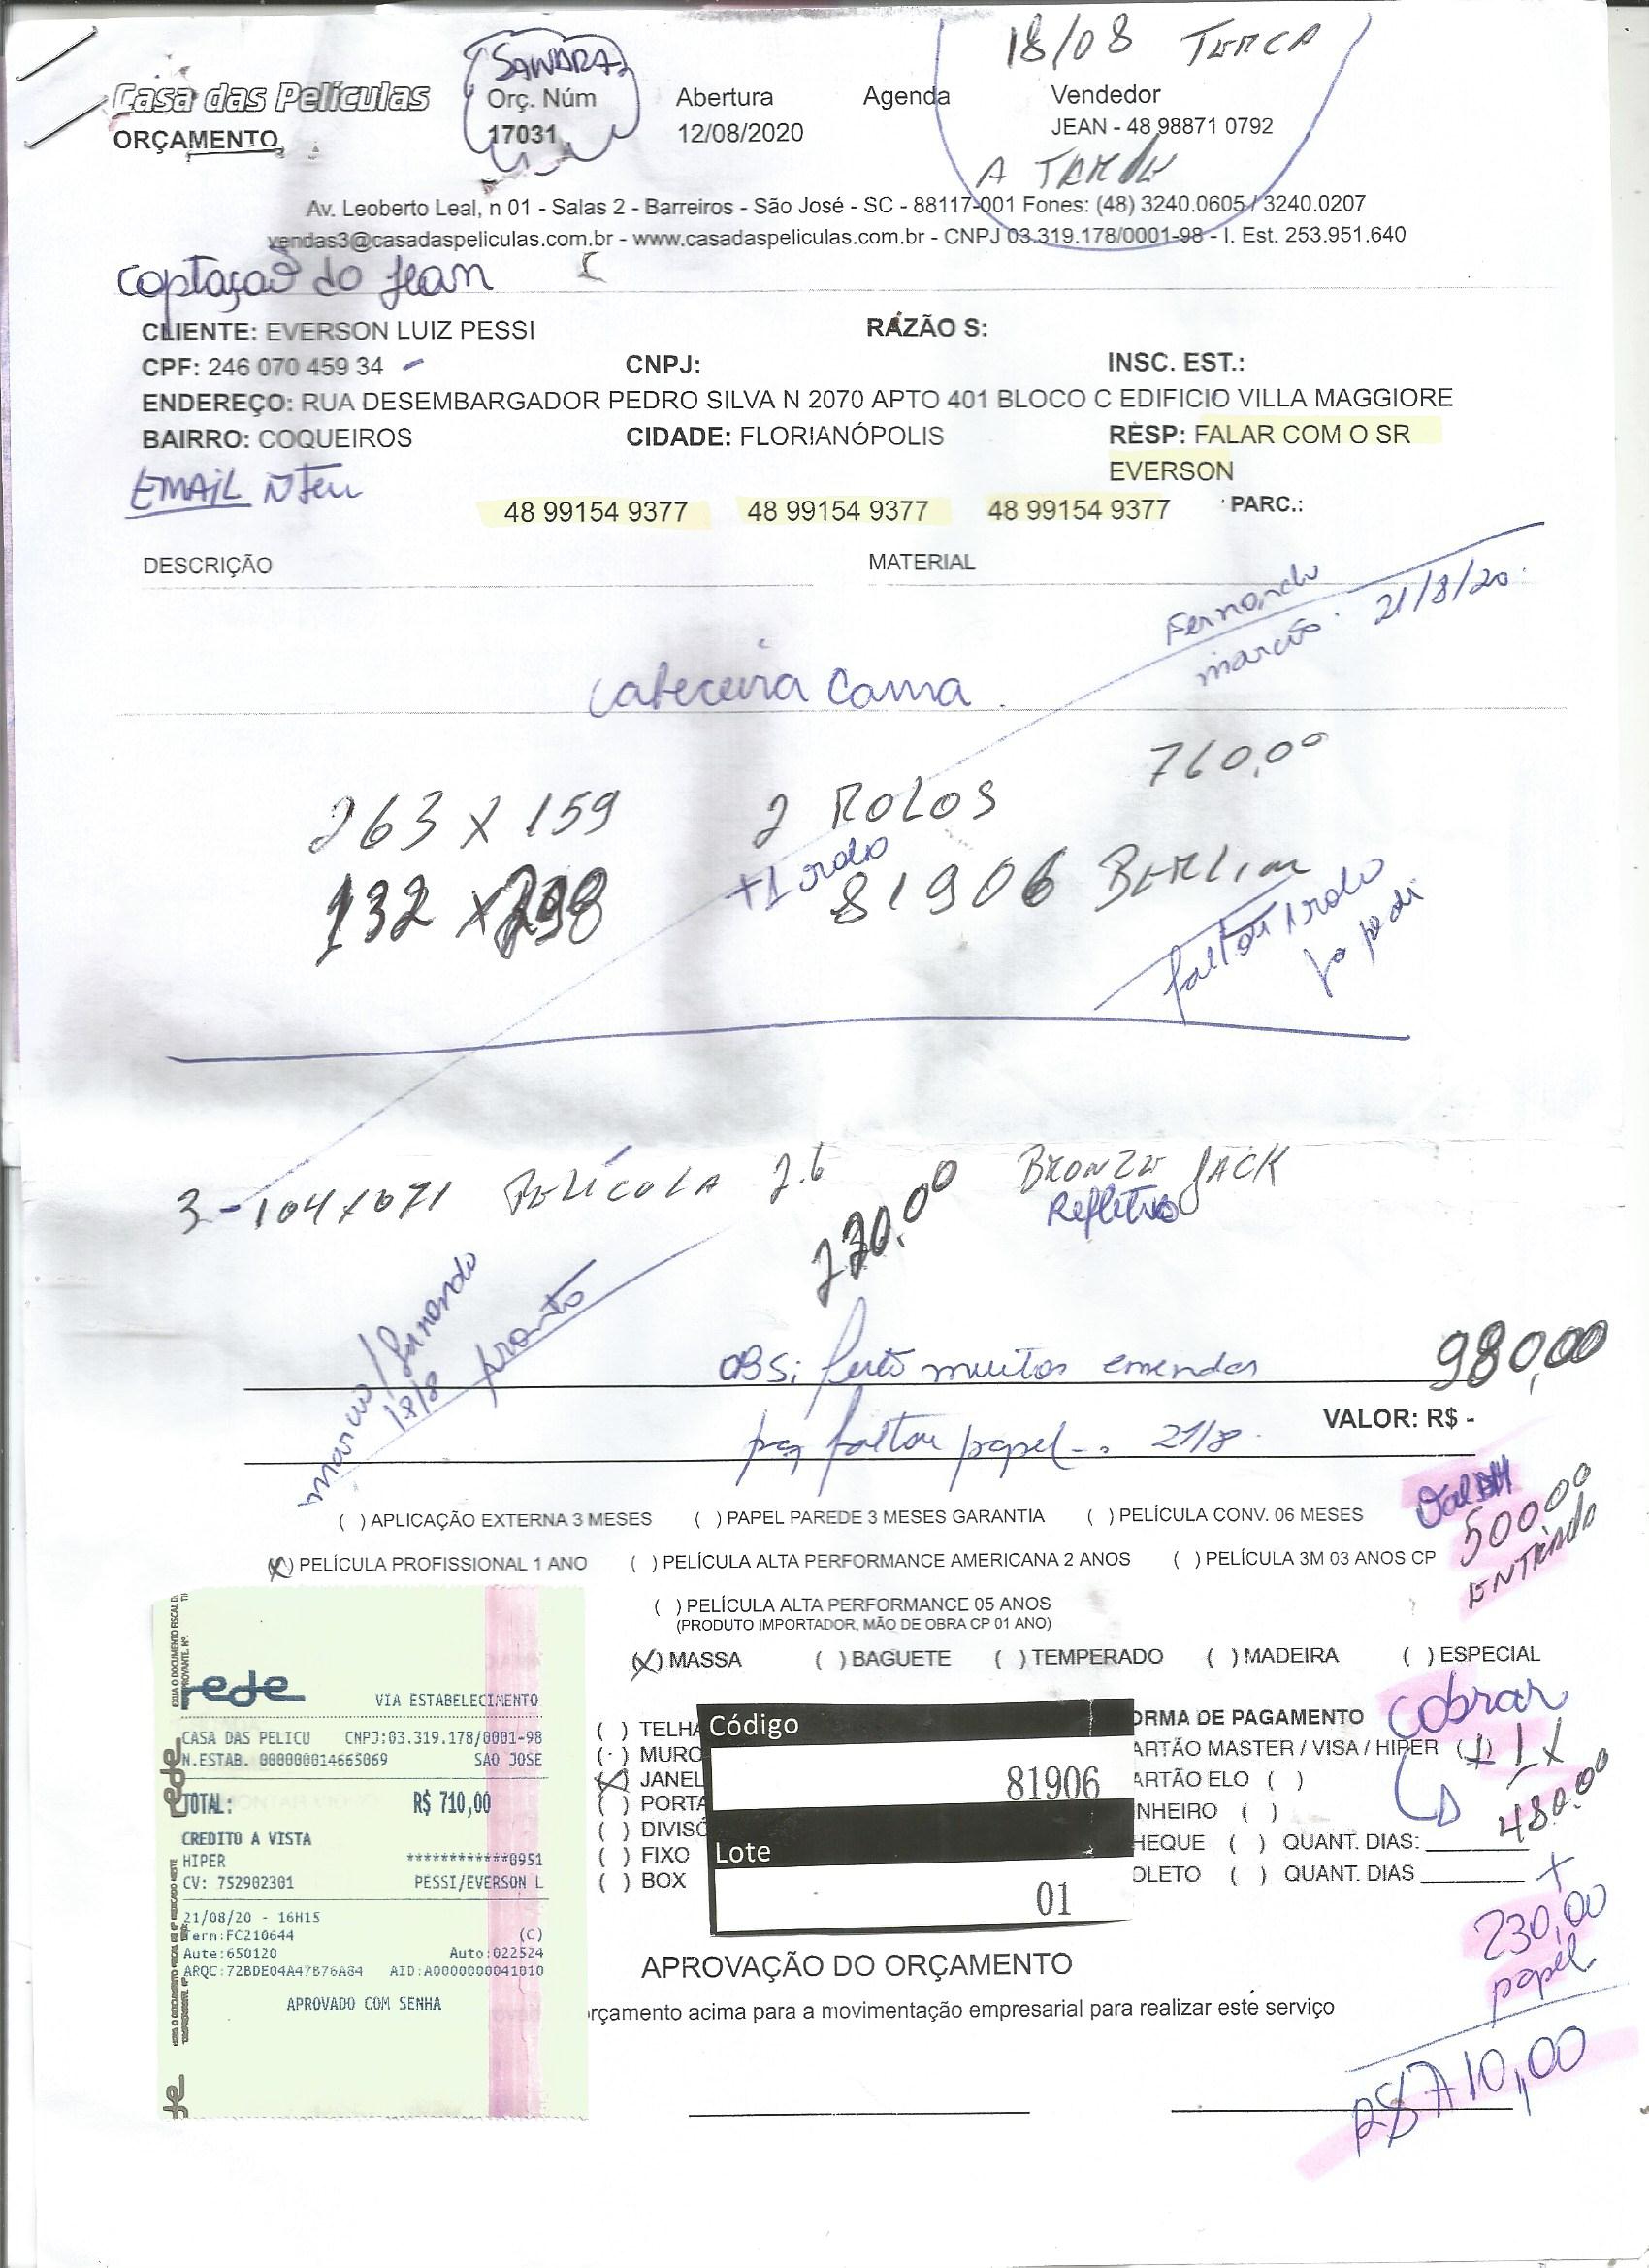 18/08 TERÇA
SANDRA
Casa das Películas
Orç. Núm Abertura Agenda Vendedor
ORÇAMENTO 17031 12/08/2020 JEAN - 48 98871 0792
A TARDE
Av. Leoberto Leal, n 01 - Salas 2 - Barreiros - São José - SC - 88117-001 Fones: (48) 3240.0605 / 3240.0207
vendas3@casadaspeliculas.com.br - www.casadaspeliculas.com.br - CNPJ 03.319.178/0001-98 - I. Est. 253.951.640
Captação do Jean
CLIENTE: EVERSON LUIZ PESSI RAZÃO S:
CPF: 246 070 459 34 CNPJ: INSC. EST.:
ENDEREÇO: RUA DESEMBARGADOR PEDRO SILVA N 2070 APTO 401 BLOCO C EDIFICIO VILLA MAGGIORE
BAIRRO: COQUEIROS CIDADE: FLORIANÓPOLIS RESP: FALAR COM O SR
EVERSON
EMAIL Ñ Tem
48 99154 9377 48 99154 9377 48 99154 9377 PARC.:
DESCRIÇÃO MATERIAL
Fernando
marcio 21/8/20
cabeceira cama
760,00
263 x 159 2 ROLOS
+1 rolo
132 x 298 81906 BERLIM
faltou 1 rolo
ja pedi
3 - 104 x 071 PELÍCULA 2.6 BRONZE JACK
Refletivo
220,00
marcio/fernando
18/8 pronto
OBS: muitos emendas 980,00
pq faltou papel 21/8
VALOR: R$ -
( ) APLICAÇÃO EXTERNA 3 MESES ( ) PAPEL PAREDE 3 MESES GARANTIA ( ) PELÍCULA CONV. 06 MESES
500,00
ENTRADA
(X) PELÍCULA PROFISSIONAL 1 ANO ( ) PELÍCULA ALTA PERFORMANCE AMERICANA 2 ANOS ( ) PELÍCULA 3M 03 ANOS CP
( ) PELÍCULA ALTA PERFORMANCE 05 ANOS
(PRODUTO IMPORTADOR, MÃO DE OBRA CP 01 ANO)
(X) MASSA ( ) BAGUETE ( ) TEMPERADO ( ) MADEIRA ( ) ESPECIAL
cobrar
rede
VIA ESTABELECIMENTO
CASA DAS PELICU CNPJ:03.319.178/0001-98
N.ESTAB. 000000014665069 SAO JOSE
TOTAL: R$ 710,00
CREDITO A VISTA
HIPER ************0951
CV: 752902301 PESSI/EVERSON L
21/08/20 - 16H15
Tern:FC210644 (C)
Aute:650120 Auto:022524
ARQC:72BDE04A47B76A84 AID:A0000000041010
APROVADO COM SENHA
( ) TELHA
( ) MURO
(X) JANEL
( ) PORTA
( ) DIVISÓ
( ) FIXO
( ) BOX
Código
81906
Lote
01
ORMA DE PAGAMENTO
ARTÃO MASTER / VISA / HIPER (1) 1X
ARTÃO ELO ( )
480,00
NHEIRO ( )
HEQUE ( ) QUANT. DIAS:
OLETO ( ) QUANT. DIAS
+
230,00
papel
APROVAÇÃO DO ORÇAMENTO
orçamento acima para a movimentação empresarial para realizar este serviço
R$ 710,00